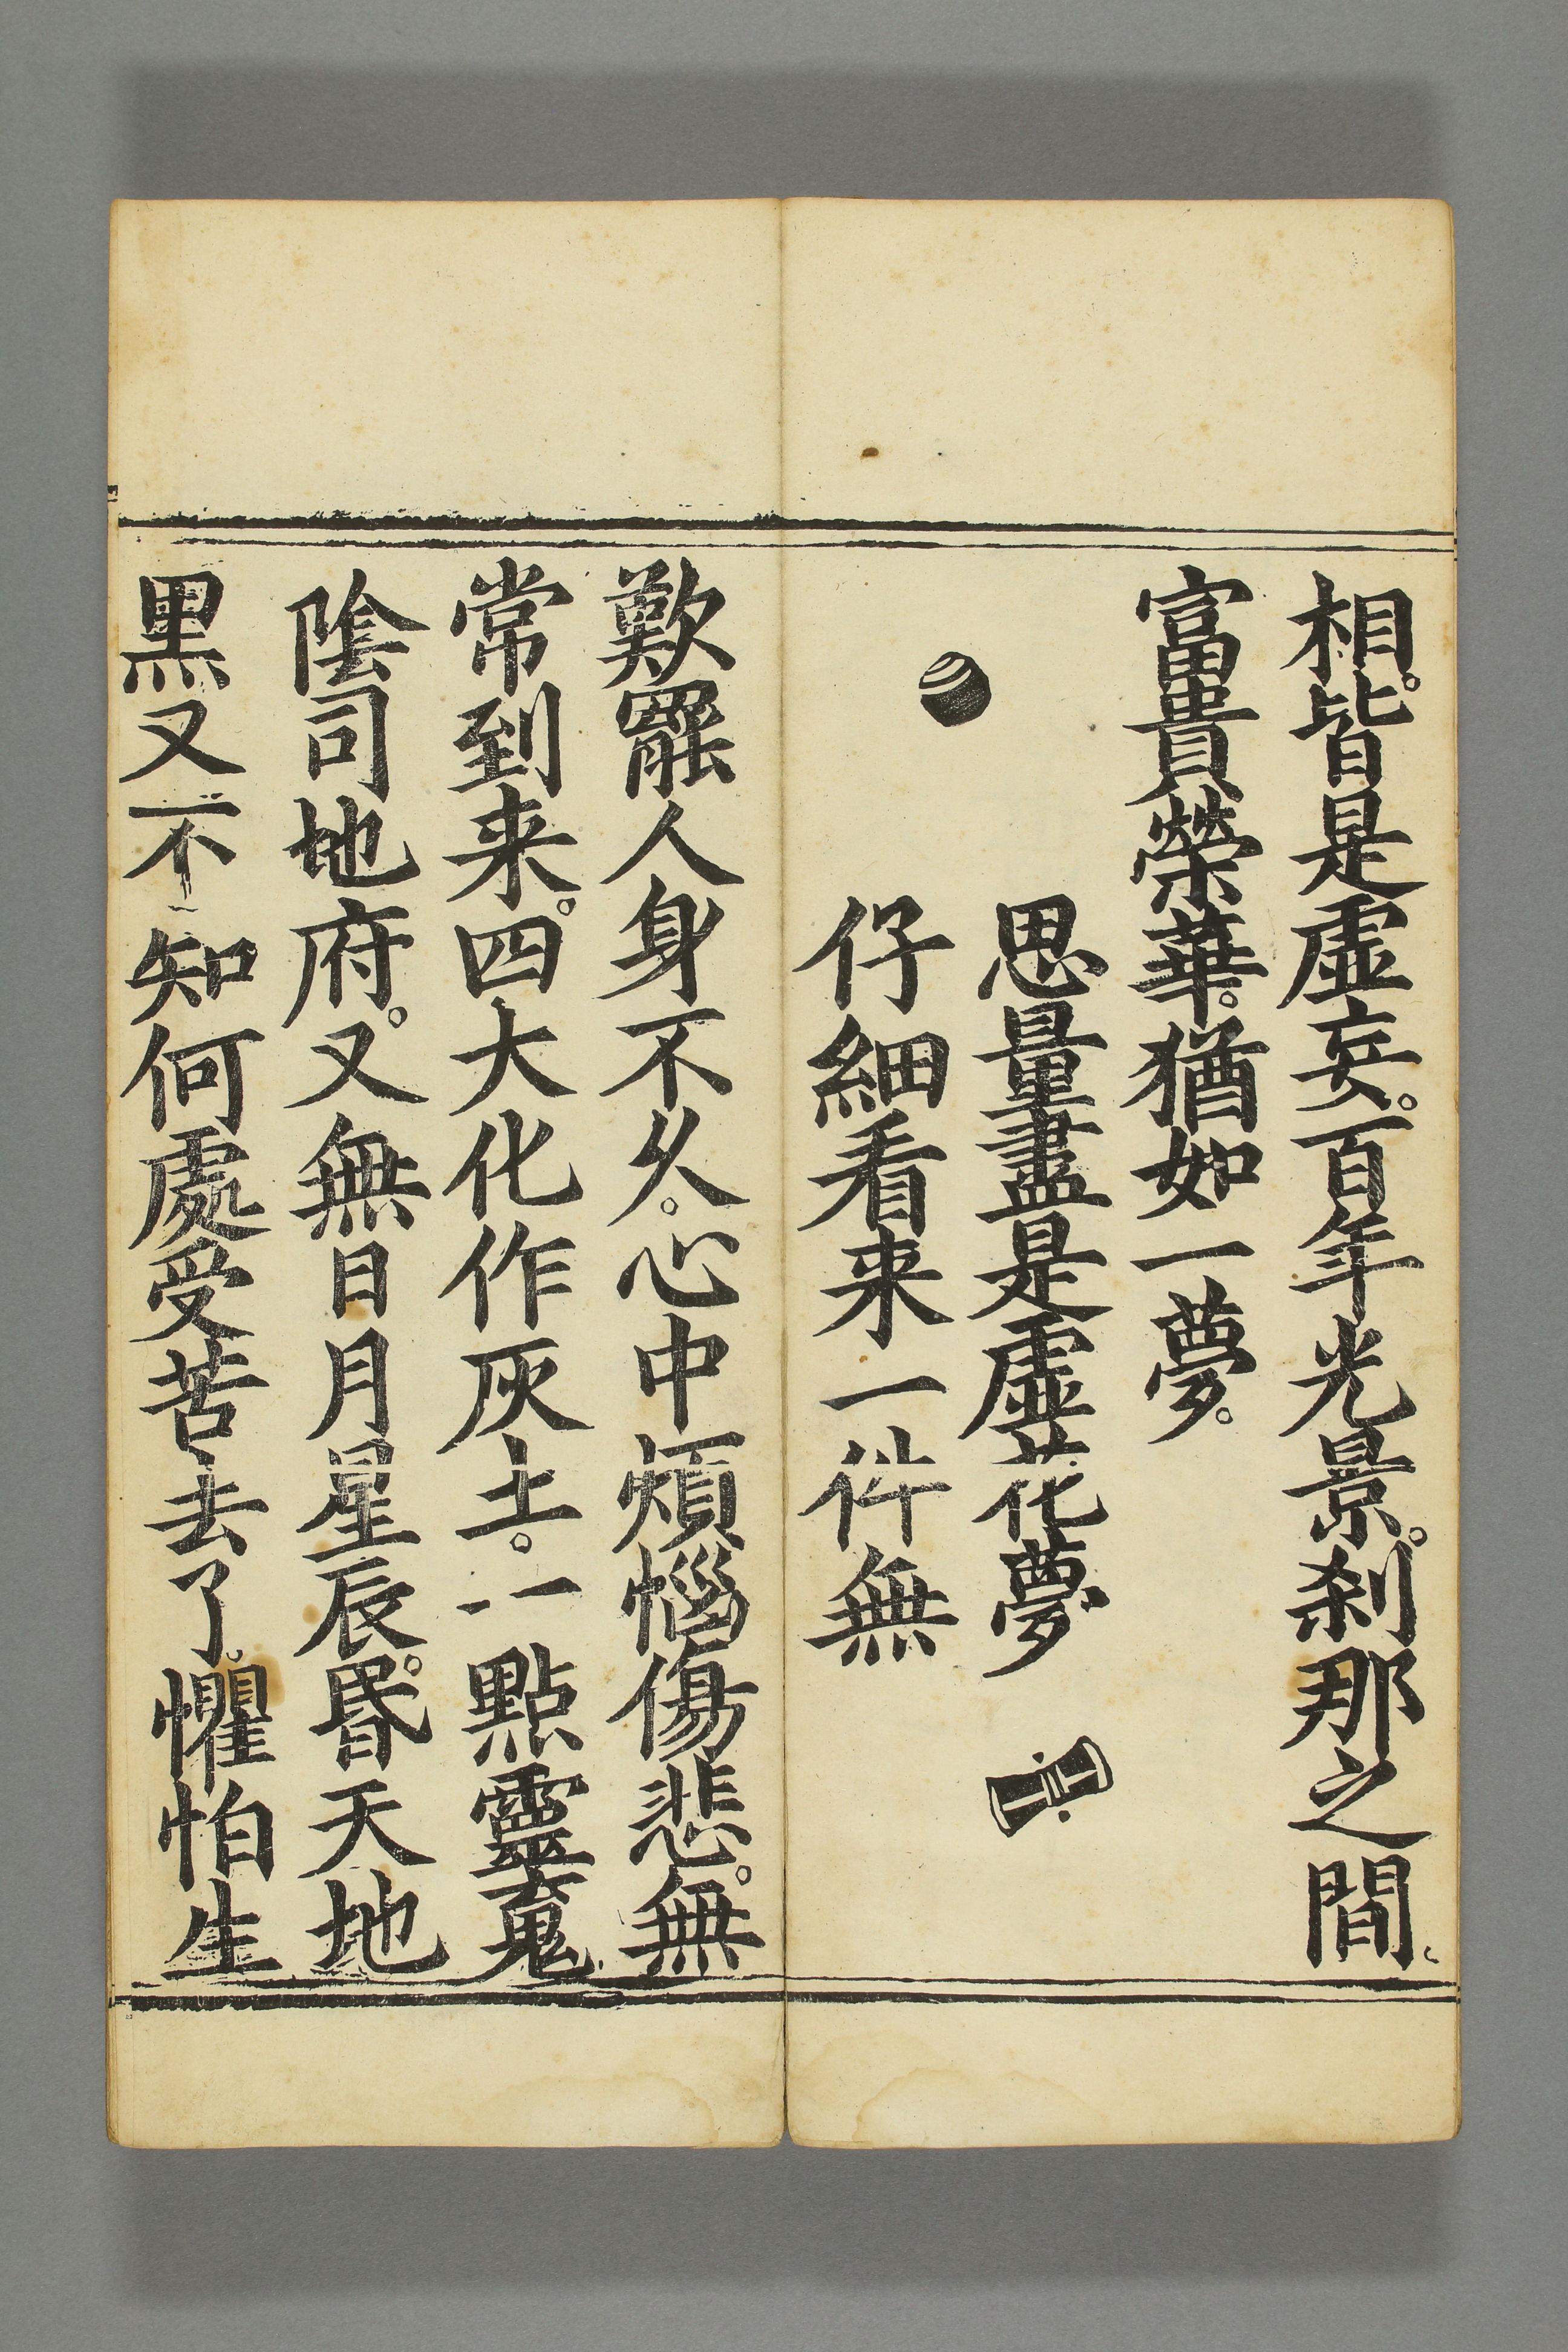 相。皆是虛妄。百年光景。刹那之間。
富貴榮華。猶如一夢。
思量盡是虛花夢
仔細看来一件無
歎罷人身不久。心中煩惱傷悲。無
常到来。四大化作灰土。一點靈䰟
陰司地府。又無日月星辰。昬天地
黒又不知何處受苦去了。懼怕生